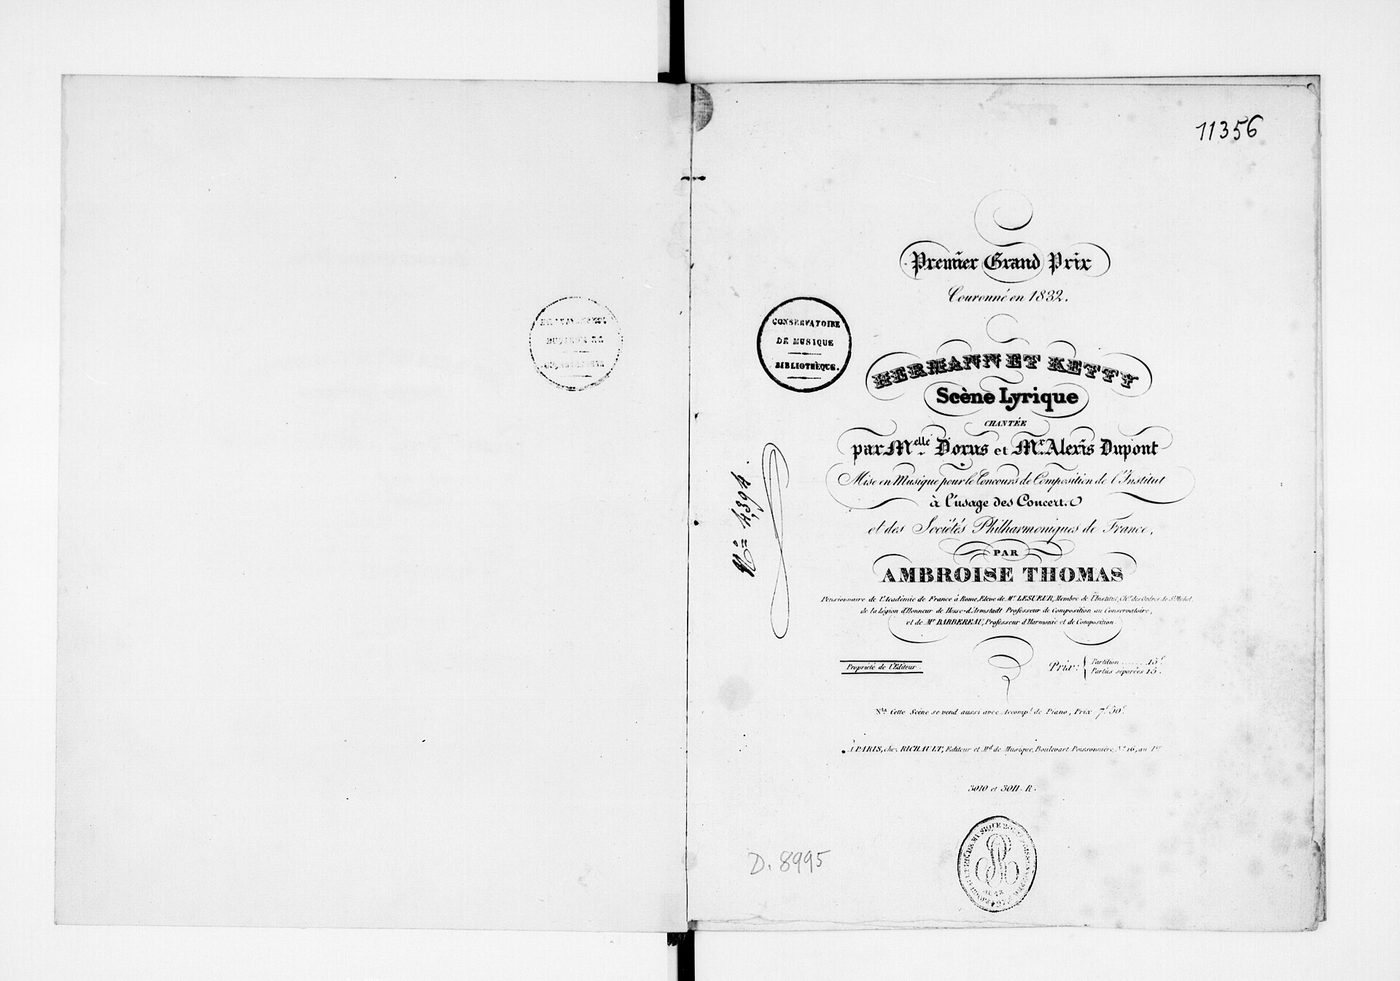 11356
Premier Grand Prix
Couronné en 1832.
CONSERVATOIRE
DE MUSIQUE
BIBLIOTHÈQUE.
HERMANN ET KETTY
Scène Lyrique
CHANTÉE
par Melle. Dorus et Mr. Alexis Dupont
Mise en Musique pour le Concours de Composition de l'Institut
à l'usage des Concert.
et des Sociétés Philharmoniques de France,
PAR
AMBROISE THOMAS
Pensionnaire de l'Académie de France à Rome, Elève de Mr. LESUEUR, Membre de l'Institut, Chr. des Ordres de St. Michel,
de la Légion d'Honneur de Hesse-d'Armstadt Professeur de Composition au Conservatoire,
et de Mr. BARBEREAU, Professeur d'Harmonie et de Composition
Propriété de l'Editeur.
Prix: Partition ....... 15f.
Parties séparées 15.
Nta. Cette Scène se vend aussi avec Accompt. de Piano, Prix 7f. 50c.
À PARIS, chez RICHAULT, Editeur et Md. de Musique, Boulevart Poissonnière, No. 16, au 1er.
3010 et 3011. R.
D. 8995